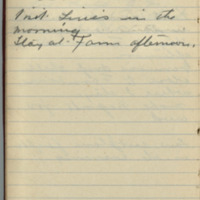 Visit Linia's in the
morning
Stay at Farm afternoon.